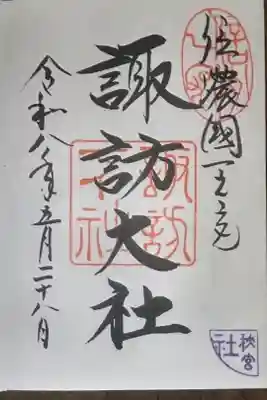 信濃國一之宮
諏訪大社
令和八年五月二十八日
諏訪
大社
秋宮